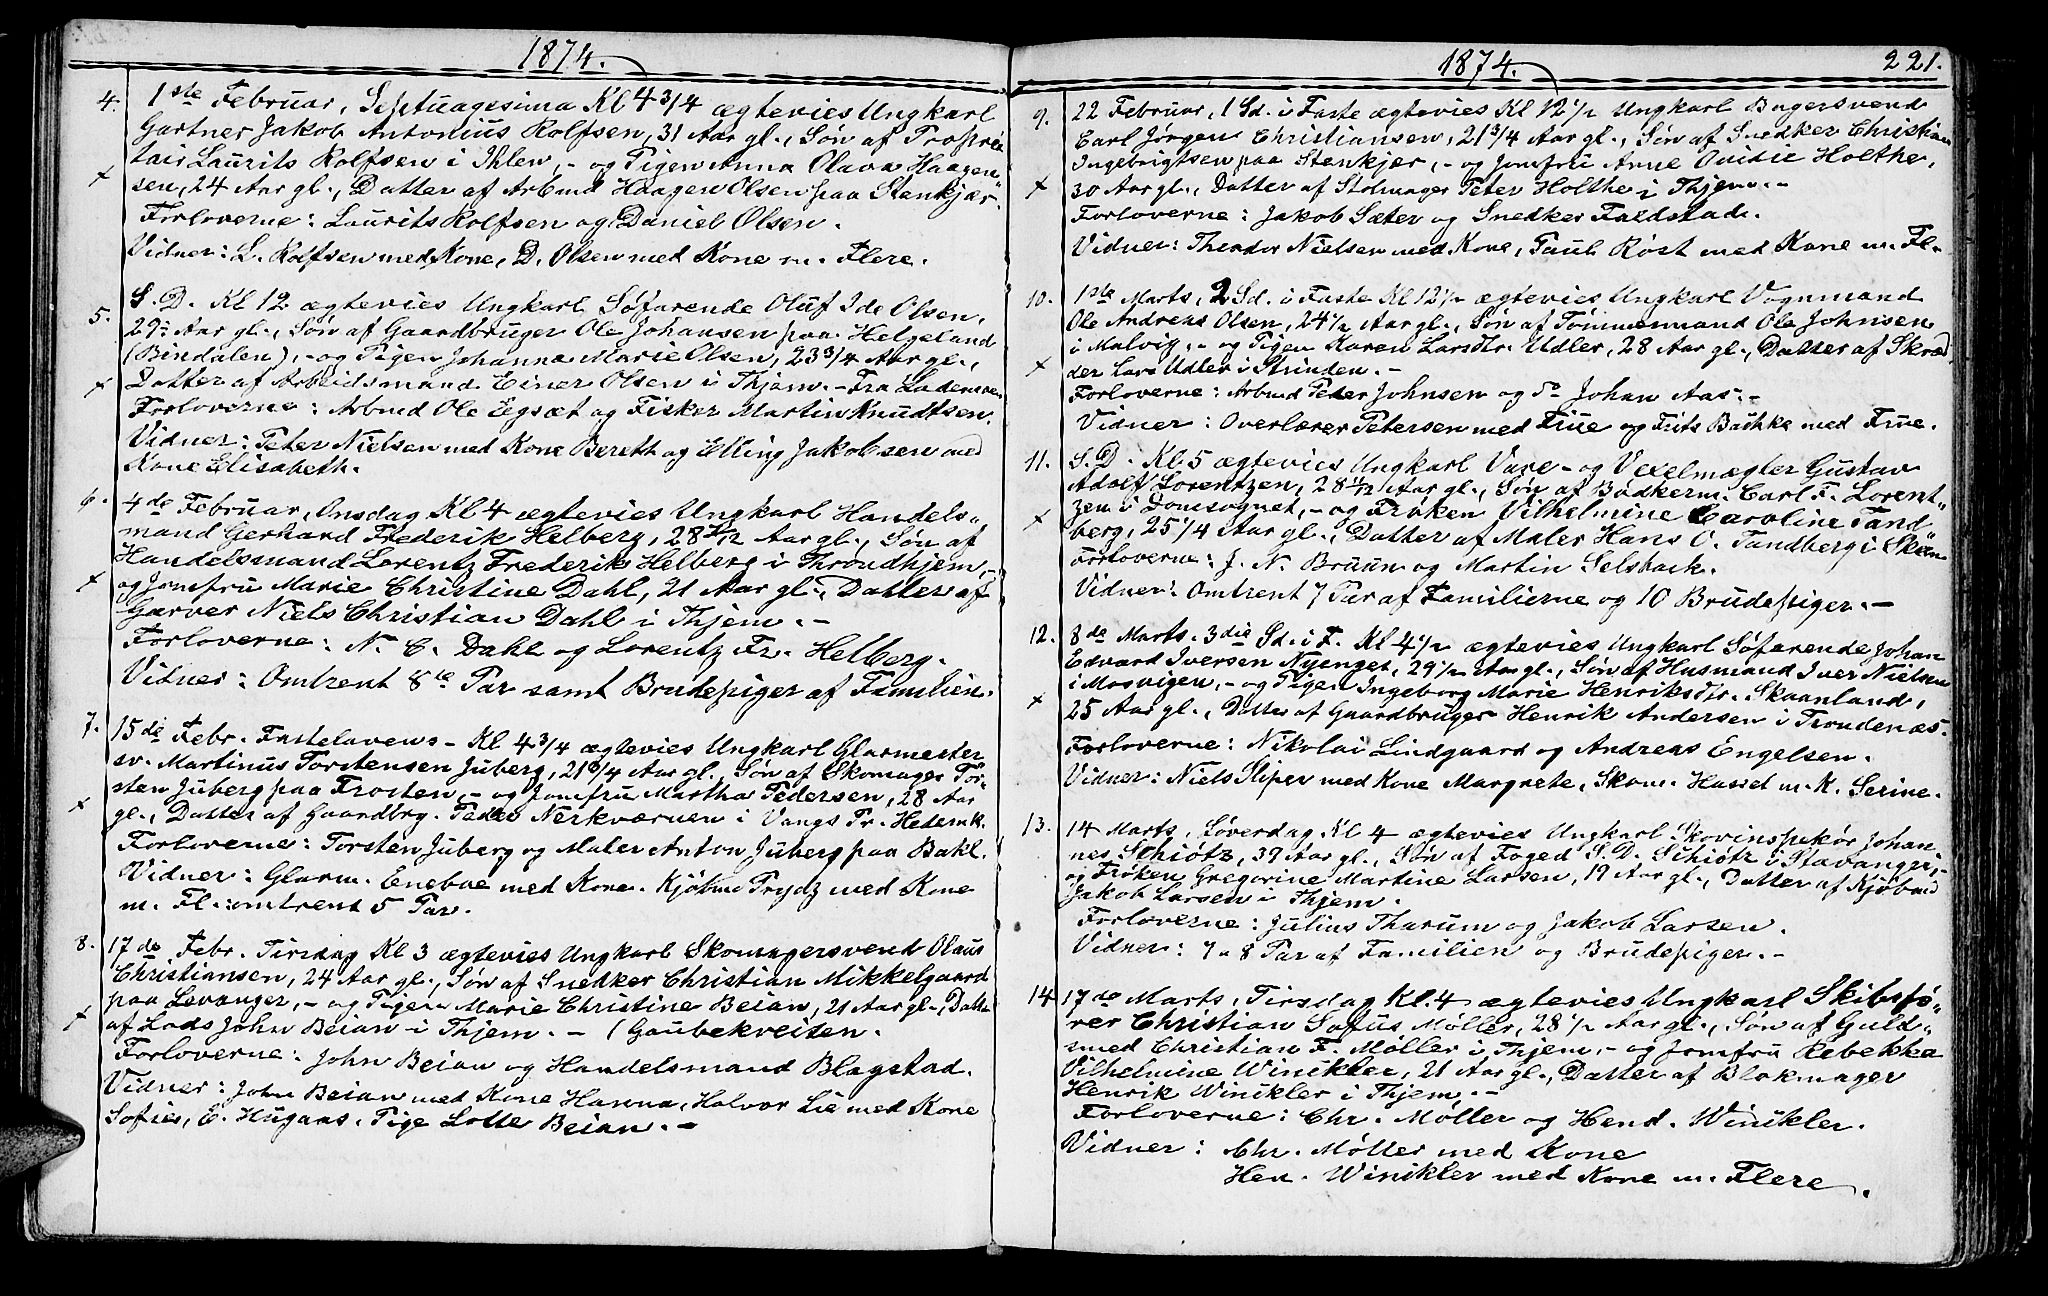 1874.
4. 1ste Februar, Septuagesima Kl 4 3/4 ægtevies Ungkarl
Gartner Jakob Antonius Rolfsen, 31 Aar gl., Søn af Proprie
tair Laurits Rolfsen i Ihlen, - og Pigen Anna Olava Haagen"
sen, 24 Aar gl., Datter af Arbmd Haagen Olsen paa Stenkjær.
Forloverne: Laurits Rolfsen og Daniel Olsen.
Vidner: L. Rolfsen med Kone, D. Olsen med Kone m. Flere.
5. S. D. Kl 12 ægtevies Ungkarl Søfarende Oluf Ide Olsen,
29 Aar gl., Søn af Gaardbruger Ole Johansen paa Helgeland
(Bindalen), - og Pigen Johanna Marie Olsen, 23 3/4 Aar gl.,
Datter af Arbeidsmand Einer Olsen i Thjem. - Fra Lademoen
Forloverne: Arbmd Ole Egsæt og Fisker Martin Knudtsen.
Vidner: Peter Nielsen med Kone Bereth og Elling Jakobsen med
Kone Elisabeth.
6. 4de Februar, Onsdag Kl 4 ægtevies Ungkarl Handels"
mand Gerhard Frederik Helberg, 28 Aar gl., Søn af
Handelsmand Lorentz Frederik Helberg i Throndhjem, -
og Jomfru Marie Christine Dahl, 21 Aar gl., Datter af
Garver Niels Christian Dahl i Thjem. -
Forloverne: N. C. Dahl og Lorentz Fr. Helberg.
Vidner: Omtrent 8te Par samt Brudepiger af Familien.
7. 15de Febr. Fastelavens - Kl 4 3/4 ægtevies Ungkarl Glarmester
sv. Martinus Torstensen Juberg, 21 3/4 Aar gl., Søn af Skomager Tor"
sten Juberg paa Frosten, - og Jomfru Martha Pedersen, 28 Aar
gl., Datter af Gaardbrg. Peder Nerkværnen i Vangs Pr. Hedemk.
Forloverne: Torsten Juberg og Maler Anton Juberg paa Bakl.
Vidner: Glarm. Eneboe med Kone. Kjøbmd Trydz med Kone
m. Fl. omtrent 5 Par.
8. 17de Febr. Tirsdag Kl 3 ægtevies Ungkarl Skomagersvend Olaus
Christiansen, 24 Aar gl., Søn af Snedker Christian Mikkelgaard
paa Levanger, - og Pigen Marie Christine Beian, 21 Aar gl., Datter
af Lods John Beian i Thjem. - (Gaubekveiten.
Forloverne: John Beian og Handelsmand Blagstad.
Vidner: John Beian med Kone Hanna, Halvor Lie med Kone
Sofie, E. Hugaas, Pige Lotte Beian. -
1874. 221.
9. 22 Februar, 1 Sd. i Faste ægtevies Kl 12 1/2 Ungkarl Bagersvend
Carl Jørgen Christiansen, 21 3/4 Aar gl., Søn af Snedker Christian
Ingebrigtsen paa Stenkjær, - og Jomfru Anne Ovidie Holthe,
30 Aar gl., Datter af Stolmager Peter Holthe i Thjem. -
Forloverne: Jakob Sæter og Snedker Faldstad.
Vidner: Theodor Nielsen med Kone, Paul Røst med Kone m. Fl.
10. 1ste Marts, 2 Sd. i Faste Kl 12 1/2 ægtevies Ungkarl Vognmand
Ole Andreas Olsen, 24 1/2 Aar gl., Søn af Tømmermand Ole Johnsen
i Malvig, - og Pigen Karen Larsdtr. Udler, 28 Aar gl., Datter af Skræd
der Lars Udler i Strinden. -
Forloverne: Arbmd Peder Johnsen og Do Johan Aas. -
Vidner: Overlærer Petersen med Frue og Frits Bachke med Frue.
11. S. D. Kl. 5 ægtevies Ungkarl Vare- og Vexelmægler Gustav
Adolf Lorentzen, 28 11/12 Aar gl., Søn af Bødkerm. Carl F. Lorent"
zen i Domsognet, - og Frøken Vilhelmine Caroline Tand"
berg, 25 1/4 Aar gl., Datter af Maler Hans O. Tandberg i Skien
Forloverne: J. N. Bruun og Martin Selsback.
Vidner: Omtrent 7 Par af Familierne og 10 Brudepiger. -
12. 8de Marts. 3die Sd. i F. Kl 4 1/2 ægtevies Ungkarl Søfarende Johan
Edvard Iversen Nyenget, 29 1/2 Aar gl., Søn af Husmand Iver Nielsen
i Mosvigen, - og Pigen Ingeborg Marie Henriksdtr. Skaanland,
25 Aar gl., Datter af Gaardbruger Henrik Andersen i Trondenæs.
Forloverne: Nikolai Lindgaard og Andreas Engelsen.
Vidner: Niels Sliper med Kone Margrete, Skom. Hassel m. K. Serine.
13. 14 Marts, Løverdag Kl 4 ægtevies Ungkarl Skovinspekør Johan
nes Schiøtz, 39 Aar gl., Søn af Foged S. D. Schiøtz i Stavanger, -
og Frøken Gregorine Martine Larsen, 19 Aar gl., Datter af Kjøbmd
Jakob Larsen i Thjem.
Forloverne: Julius Tharum og Jakob Larsen.
Vidner: 7 a 8 Par af Familien og Brudepiger. -
14 17de Marts, Tirsdag Kl. 4 ægtevies Ungkarl Skibsfø"
rer Christian Sofus Møller, 28 1/2 Aar gl., Søn af Guld"
smed Christian F. Møller i Thjem, - og Jomfru Rebekka
Vilhelmine Winikler, 21 Aar gl., Datter af Blokmager
Henrik Winikler i Thjem, -
Forloverne: Chr. Møller og Hend. Winikler.
Vidner: Chr. Møller med Kone
Hen. Winikler med Kone m. Flere.